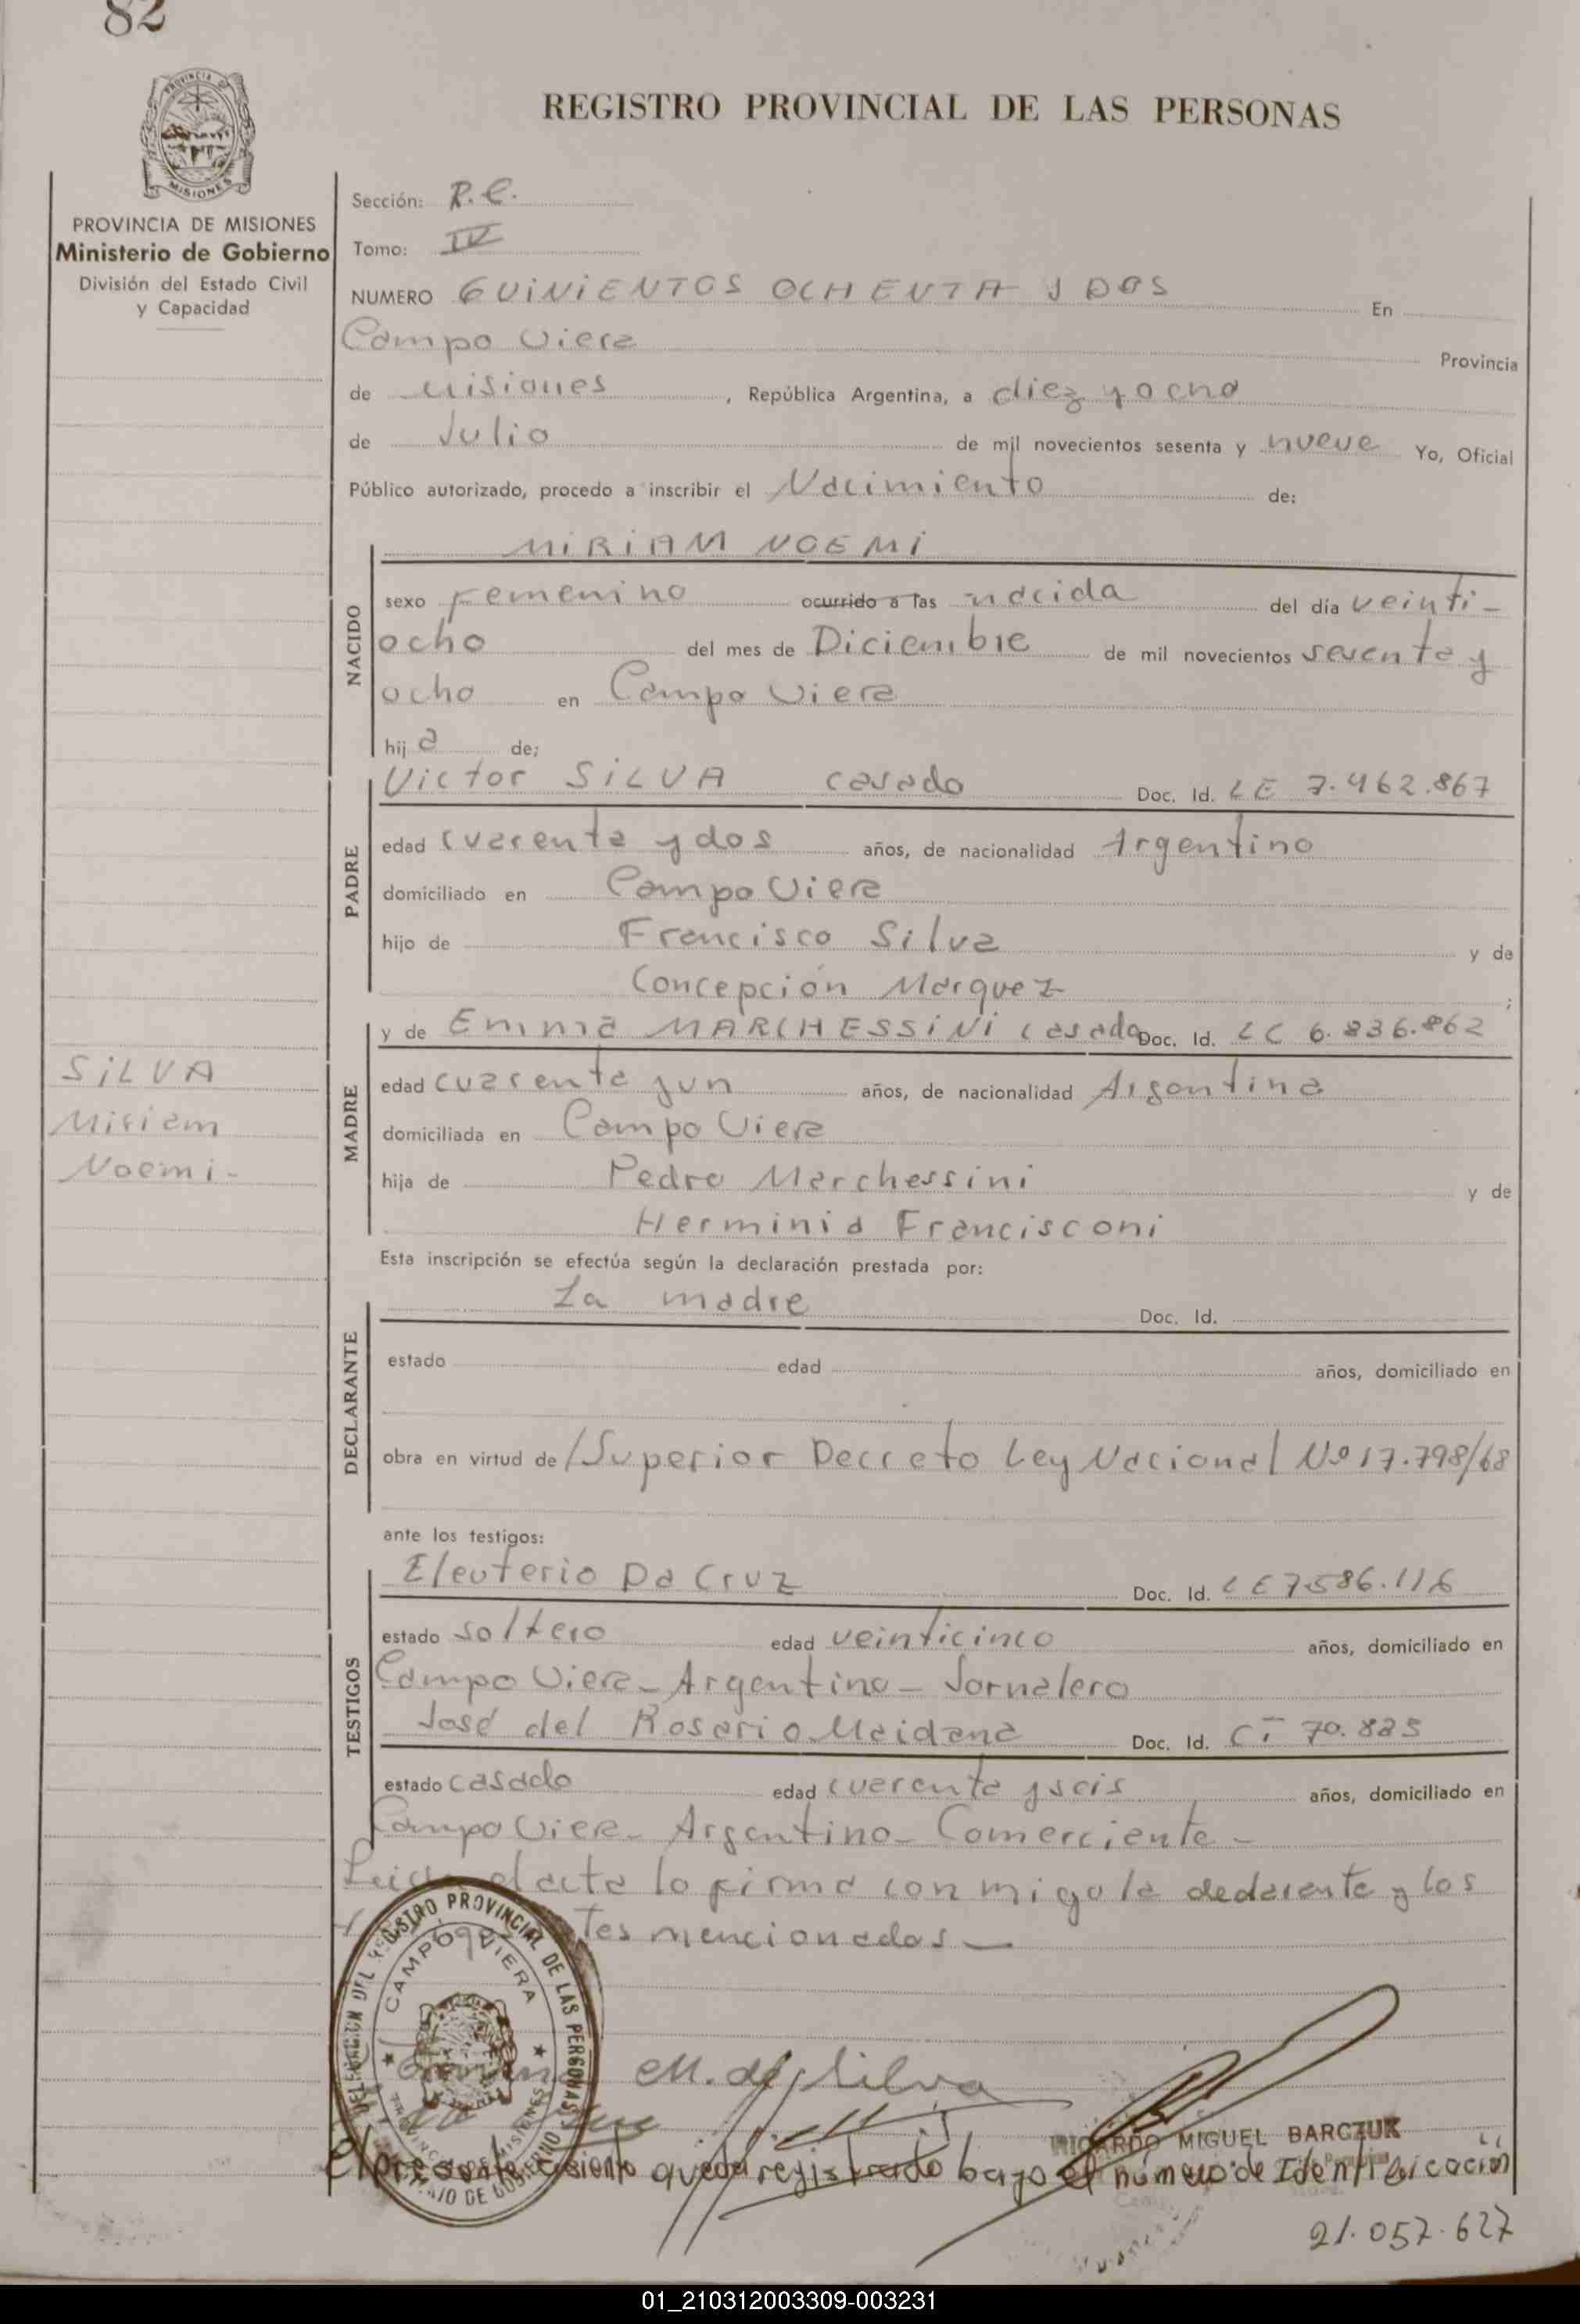 82
REGISTRO PROVINCIAL DE LAS PERSONAS
PROVINCIA DE MISIONES
Ministerio de Gobierno
División del Estado Civil
y Capacidad
Sección: R.C.
Tomo: IV
NUMERO QUINIENTOS OCHENTA Y DOS En
Campo Viera Provincia
de Misiones, República Argentina, a diez y ocho
de Julio de mil novecientos sesenta y nueve Yo, Oficial
Público autorizado, procedo a inscribir el Nacimiento de:
MIRIAM NOEMI
NACIDO
sexo Femenino ocurrido a las nacida del día veinti-
ocho del mes de Diciembre de mil novecientos sesenta y
ocho en Campo Viera
hija de;
PADRE
Victor SILVA casado Doc. Id. LE 7.462.867
edad cuarenta y dos años, de nacionalidad Argentino
domiciliado en Campo Viera
hijo de Francisco Silva y de
Concepción Marquez;
MADRE
y de Emma MARCHESSINI casada Doc. Id. LC 6.836.862
edad cuarenta y un años, de nacionalidad Argentina
domiciliada en Campo Viera
hija de Pedro Marchessini y de
Herminia Francisconi
SILVA
Miriam
Noemi-
Esta inscripción se efectúa según la declaración prestada por:
DECLARANTE
La madre Doc. Id.
estado edad años, domiciliado en
obra en virtud de /Superior Decreto Ley Nacional Nº 17.798/68
ante los testigos:
TESTIGOS
Eleuterio Da Cruz Doc. Id. LE 7.586.116
estado soltero edad veinticinco años, domiciliado en
Campo Viera- Argentino- Jornalero
José del Rosario Maidana Doc. Id. CI 70.825
estado casado edad cuarenta y seis años, domiciliado en
Campo Viera- Argentino- Comerciante-
el acta lo firma conmigo la declarante y los
mencionados-
DELEGACION DEL REGISTRO PROVINCIAL DE LAS PERSONAS
CAMPO VIERA
PROVINCIA DE MISIONES
M. de Silva
RICARDO MIGUEL BARCZUK
El presente asiento queda registrado bajo el número de Identificación
21.057.627
01_210312003309-003231